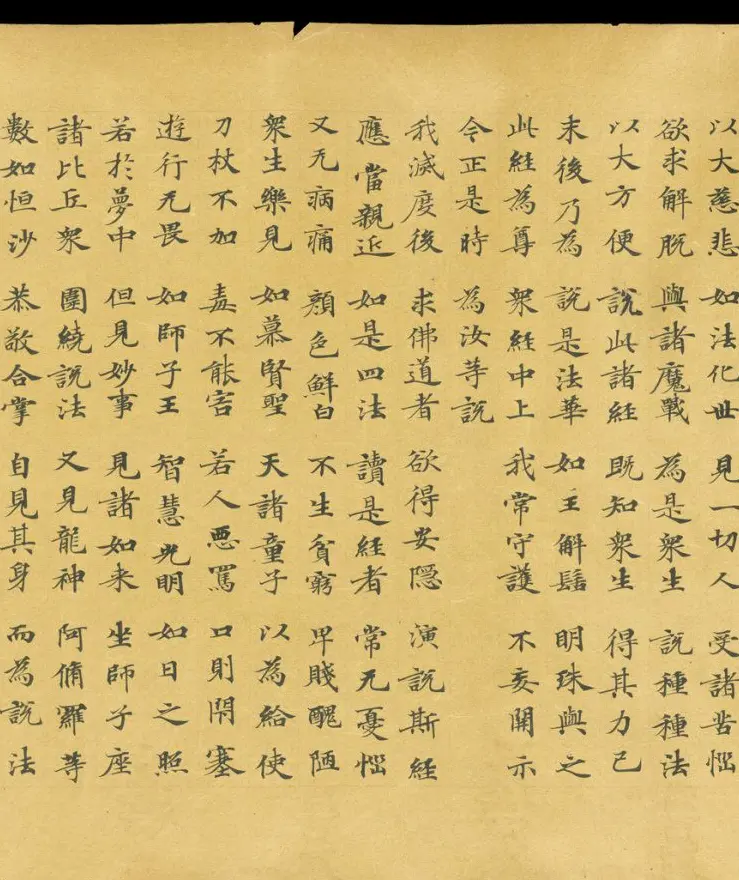 以大慈悲 如法化世 見一切人 受諸苦惱
欲求解脫 與諸魔戰 為是眾生 說種種法
以大方便 說此諸經 既知眾生 得其力已
末後乃為 說是法華 如王解髻 明珠與之
此經為尊 眾經中上 我常守護 不妄開示
今正是時 為汝等說
我滅度後 求佛道者 欲得安隱 演說斯經
應當親近 如是四法 讀是經者 常无憂惱
又无病痛 顏色鮮白 不生貧窮 卑賤醜陋
眾生樂見 如慕賢聖 天諸童子 以為給使
刀杖不加 毒不能害 若人惡罵 口則閇塞
遊行无畏 如師子王 智慧光明 如日之照
若於夢中 但見妙事 見諸如来 坐師子座
諸比丘眾 圍繞說法 又見龍神 阿脩羅等
數如恒沙 恭敬合掌 自見其身 而為說法